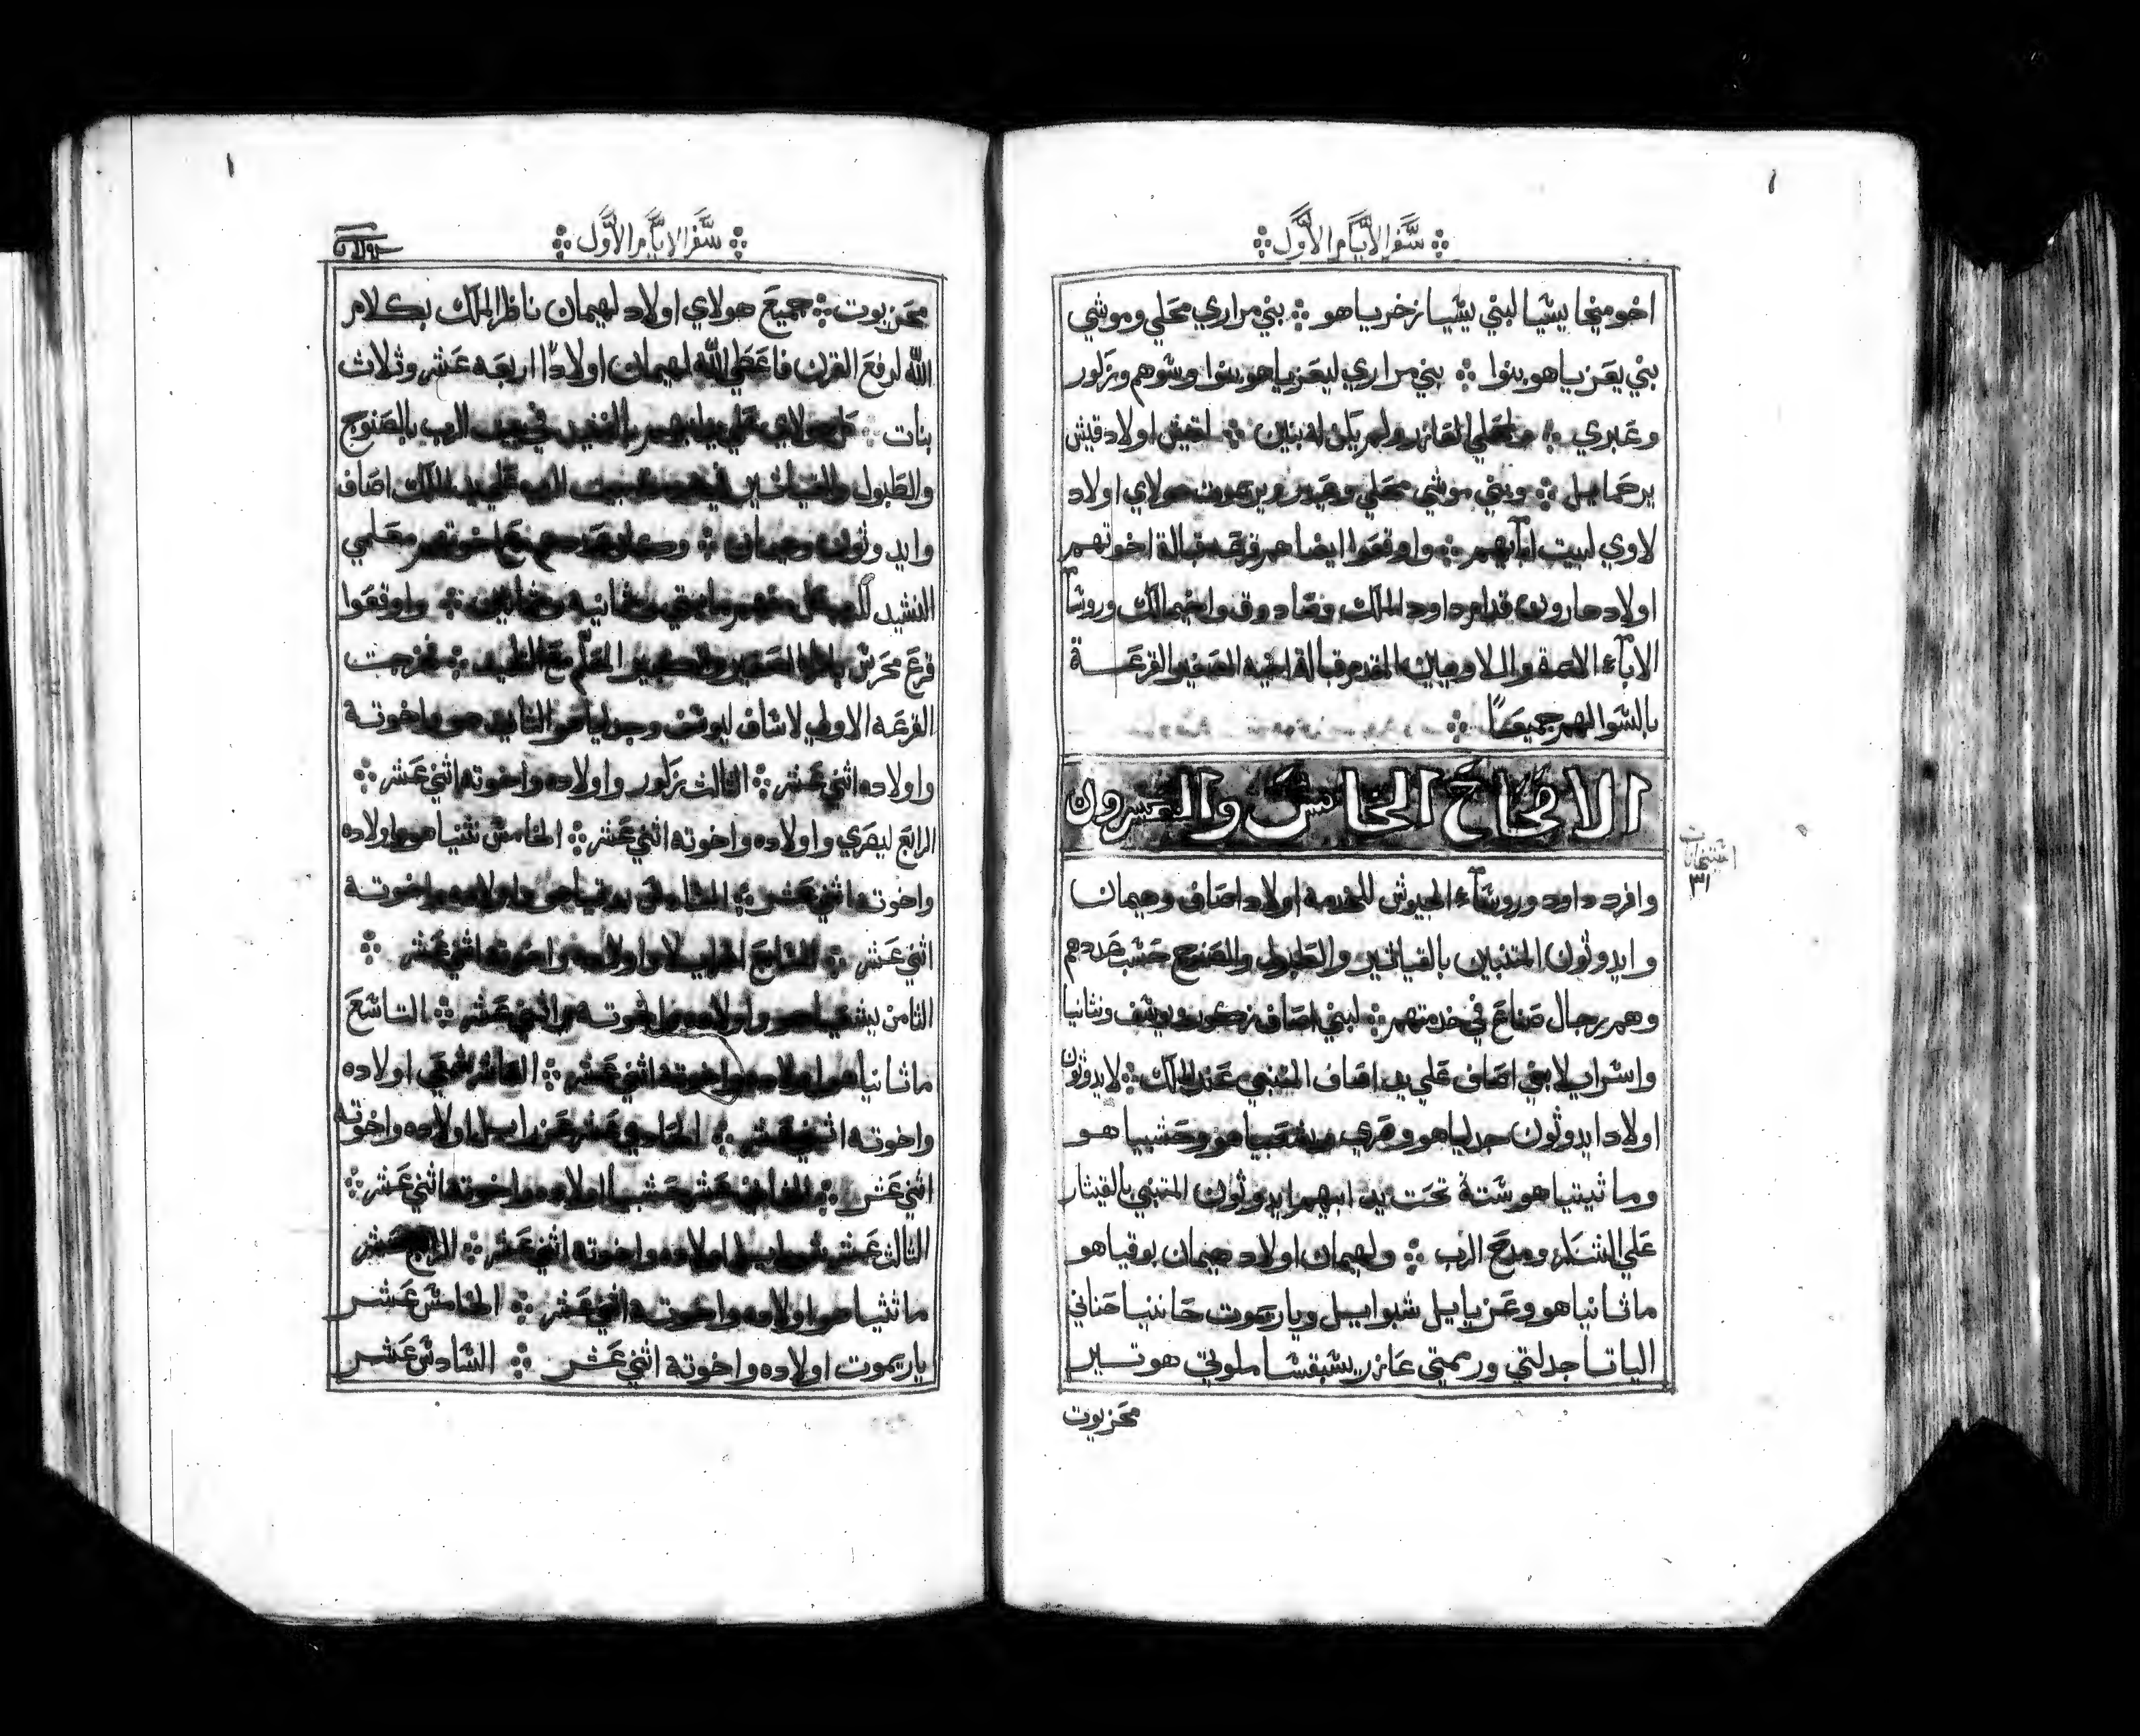 سَّفر الايَّام الاوَّل
اخو ميخا يشيا لبني يشيا زخرياهو ܀ بني مراري محلي وموشي
بني يعزياهو بنوا ܀ بني مراري ليعزياهو بنوا وشوهم وزكور
وعبري ܀ محلي العازر ولم يكن له بنين ܀ لقيش اولاد قيش
يرحمايل ܀ وبني موشي محلي وعيدر ويريموت هولاي اولاد
لاوي لبيت ابآيهم ܀ واوقعوا ايضا هم قرعه قبالة اخوتهم
اولاد هارون قدام داود الملك وصادوق واخيمالك وروسآ
الابآء الايمة واللاويين المقدم قبالة اخيه الصغير القرعة
بالسوا لهم جميعًا ܀
الاصحاح الخامس والعشرون
وافرد داود وروسآء الجيوش للخدمة اولاد اصاف وهيمان
وايدوثون المتنبيين بالقياثير والطبول والصنج حسب عددهم
وهم رجال صناع في خدمتهم ܀ لبني اصاف زكور ويوسف ونثانيا
واسراي لابني اصاف علي يد اصاف المتنبي عند الملك ܀ لايدوثون
اولاد ايدوثون جدلياهو وصري وحشبياهو
وماثيتياهو ستة تحت يد ابيهم ايدوثون المتنبي بالقيثار
علي الشكر ومدح الرب ܀ ولهيمان اولاد هيمان بوقياهو
ماثانياهو وعزيايل شبوايل ويارىموت حاننيا حناني
الياتا جدلتي ورممتي عازر يشبقشا ملوتي هوتير
محزيوت
سَّفر الايَّام الاوَّل
محزيوت ܀ جميع هولاي اولاد لهيمان ناظر الملك بكلام
الله لرفع القرن فاعطي الله لهيمان اولادًا اربعه عشر وثلاث
بنات ܀ كل هولاي علي يد ابيهم بالنشيد في بيت الرب بالصنوج
والطبول والقياثير الرب علي يد الملك اصاف
وايدوثون وهيمان ܀ وكان عددهم مع اخوتهم معلمي
النشيد للرب مايتي وثمانيه وثمانين ܀ واوقعوا
قرع محرس الصغير والكبير المعلم مع التلميذ ܀ فخرجت
القرعه الاولي لاساف ليوسف وجدلياهو الثانيه هو واخوته
واولاده اثني عشر ܀ الثالث زكور واولاده واخوته اثني عشر ܀
الرابع ليصري واولاده واخوته اثني عشر ܀ الخامس نثنياهو واولاده
واخوته اثني عشر ܀ السادس بوقياهو واولاده واخوته
اثني عشر ܀ السابع اولاده واخوته اثني عشر ܀
الثامن يشعياهو واولاده واخوته اثني عشر ܀ التاسع
ماثانياهو اولاده واخوته اثني عشر ܀ العاشر شمعي اولاده
واخوته اثني عشر ܀ الحادي عشر عزرايل اولاده واخوته
اثني عشر ܀ الثاني عشر حشبيا اولاده واخوته اثني عشر ܀
الثالث عشر شوبايل اولاده واخوته اثني عشر ܀ الرابع عشر
ماثثياهو اولاده واخوته اثني عشر ܀ الخامس عشر
ياريموت اولاده واخوته اثني عشر ܀ السادس عشر